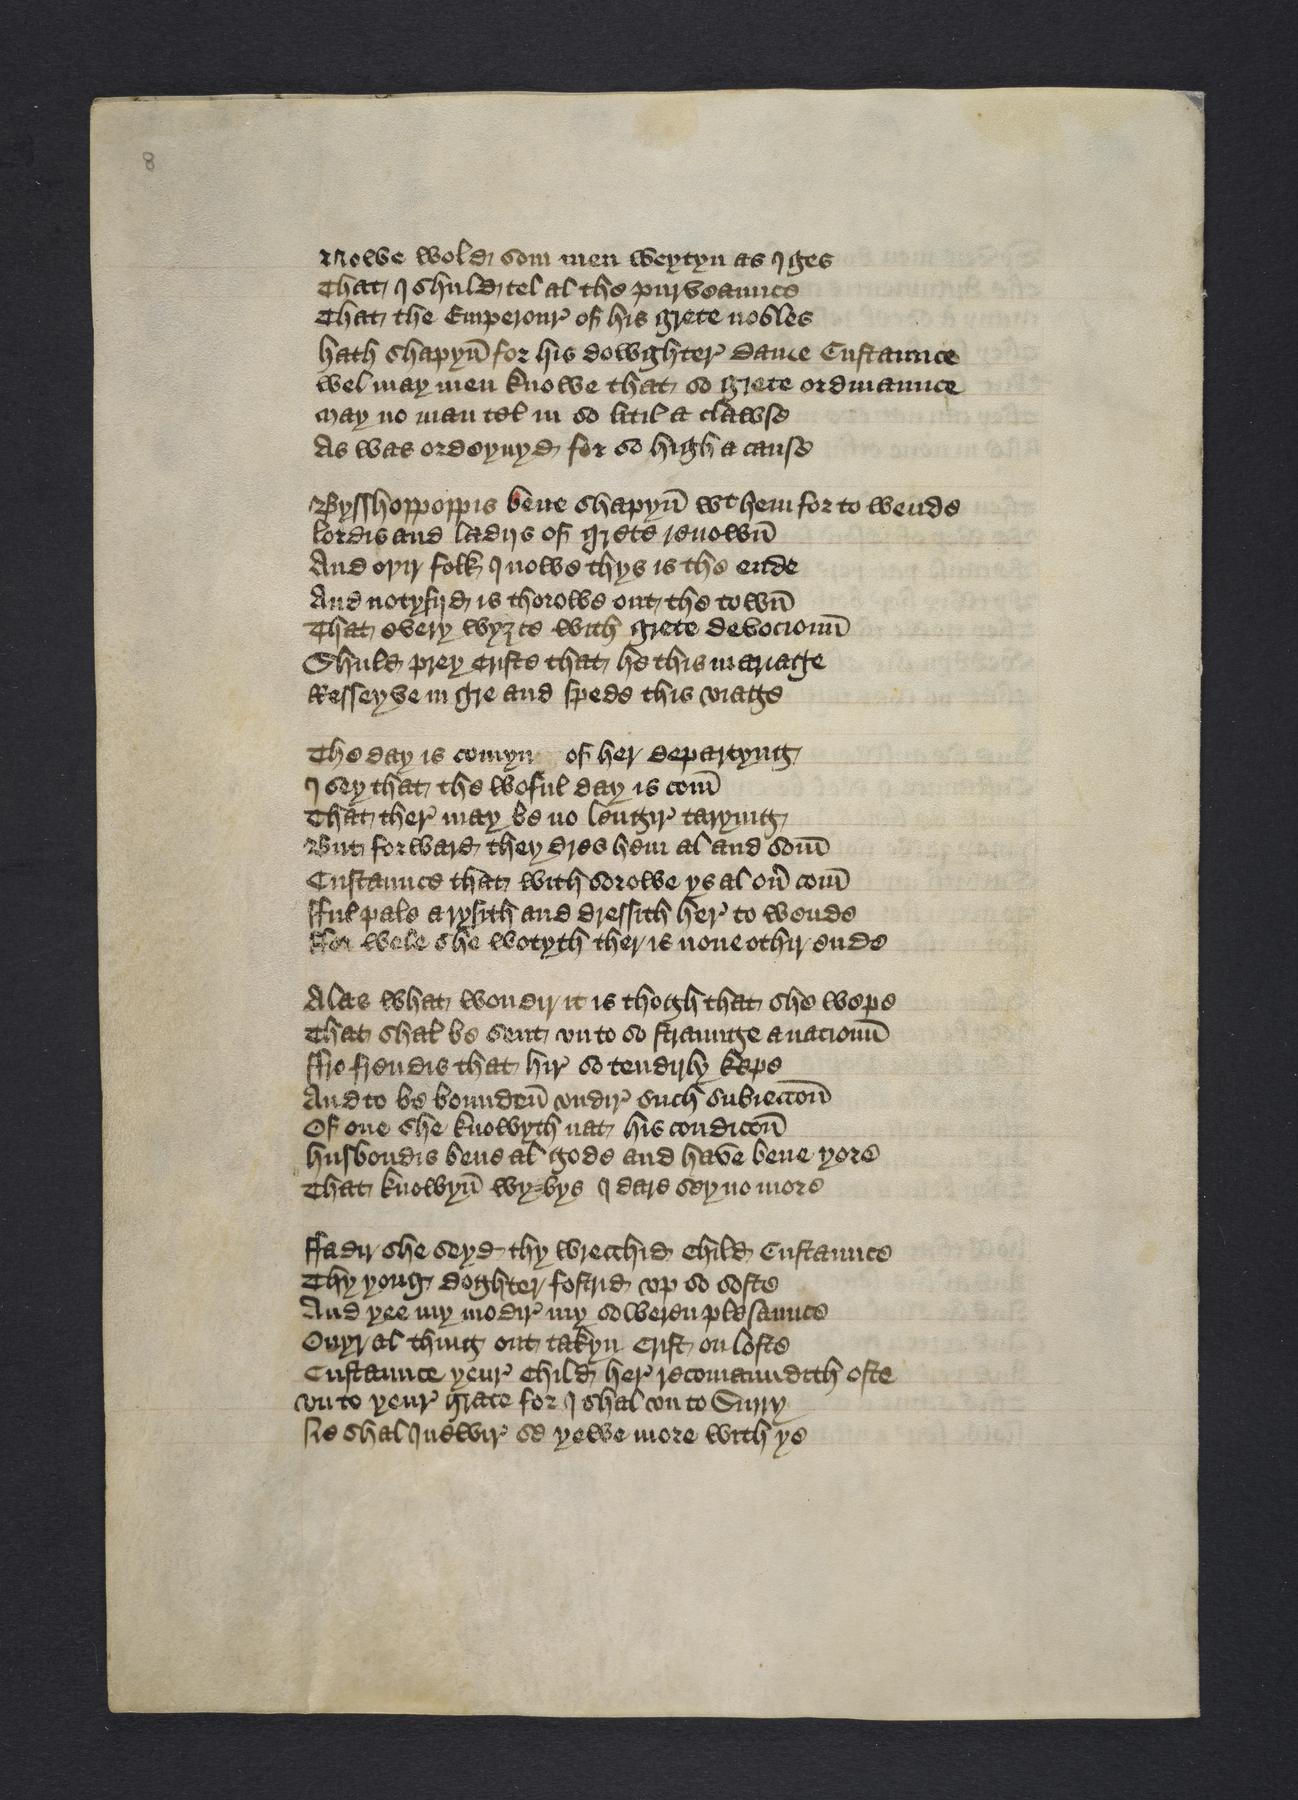 8
Nowe wold som men weytyn as I ges
That I shuld tel al the purveaunce
That the Emperour of his grete nobles
hath shapyn̄ for his dowghter dame Custaunce
wel may men knowe that so grete ordinaunce
may no man tel in so litil a clawse
As was ordeynyd for so high a cause
Bysshoppoppis bene shapyn̄ wt hem for to wende
lordis and ladijs of grete renown̄
And oyir folk I nowe thys is the ende
And notyfijd is thorowe out the town̄
That every wyȝte with grete devocioun̄
Shuld prey Criste that he this mariage
Resseyve in gre and spede this viage
The day is comyn of her departyng
I sey that the woful day is com̄
That ther may be no lengir taryyng
But forward they dres hem al and som̄
Custaunce that with sorowe ys al ovir com̄
fful pale arysith and dressith her to wende
ffor wele she wotyth ther is none othir ende
Alas what wondir it is thogh that she wepe
That shal be sent vn to so straunge a nacioun̄
ffro frendis that hir so tendirly kepe
And to be bounden̄ vndir such subieccon̄
Of one she knowyth nat his condicon̄
husbondis bene al gode and have bene yore
That knowyn̄ wyvys I dare sey no more
ffadir she seyd thy wrecchid child Custaunce
Thy yong doghter fostrid vp so softe
And yee my modir my soveren plesaunce
Ovyr al thing out takyn Crist on lofte
Custaunce your child her recomaundith ofte
vn to your grace for I shal vn to Surry
Ne shal I nevir se yewe more with ye